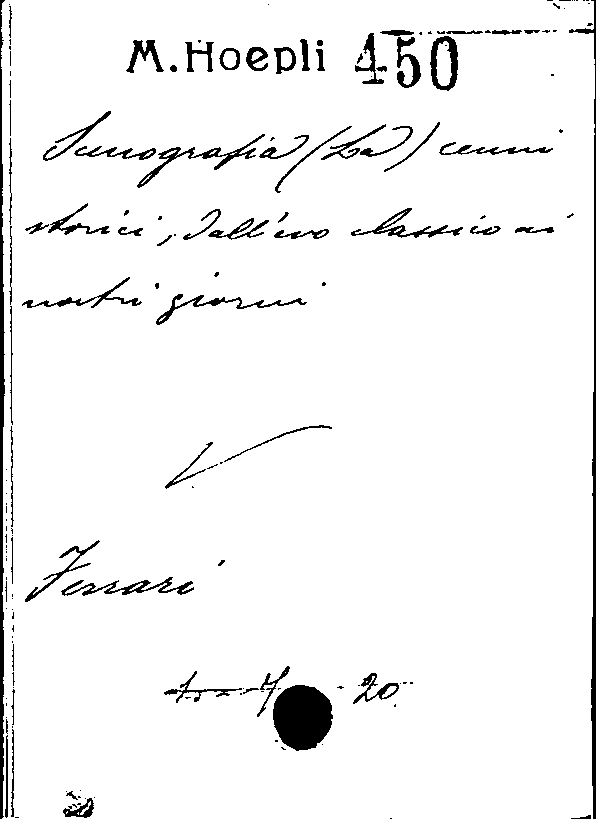 M. Hoepli 450
Scenografia (La) cenni
storici, dall'evo classico ai
nostri giorni
Ferrari
20